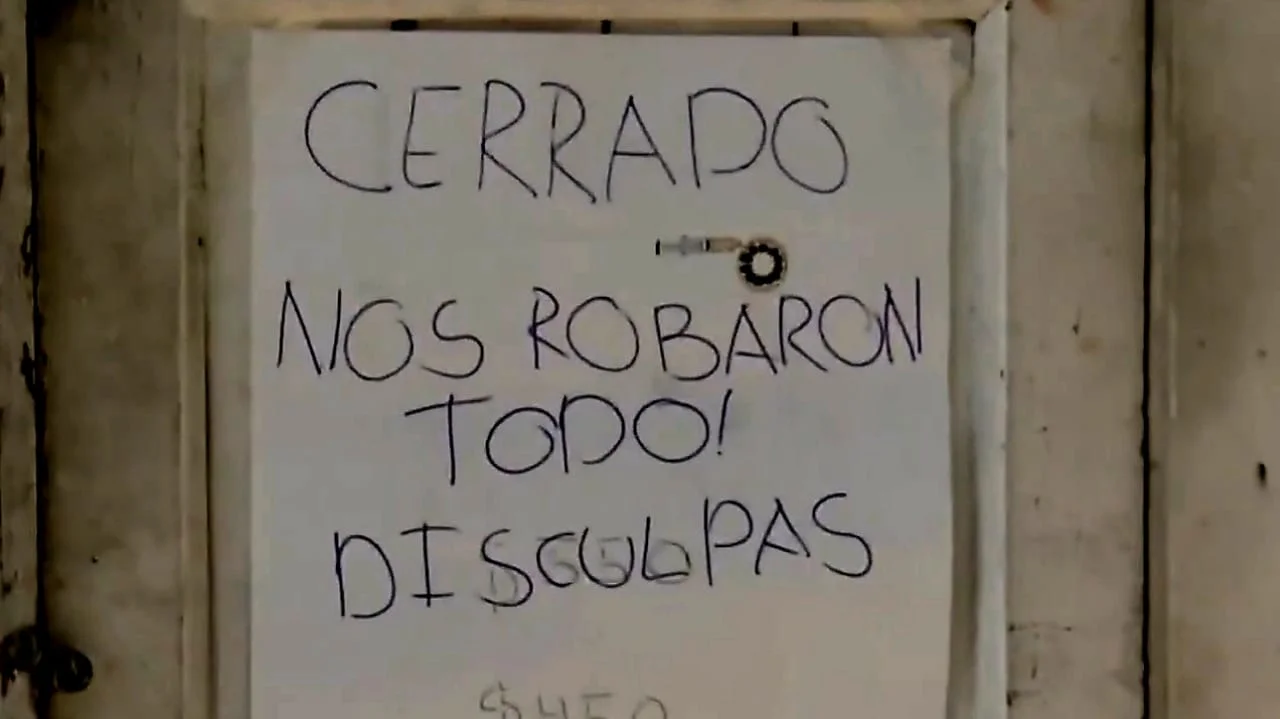 CERRADO
NOS ROBARON
TODO!
DISCULPAS
$450